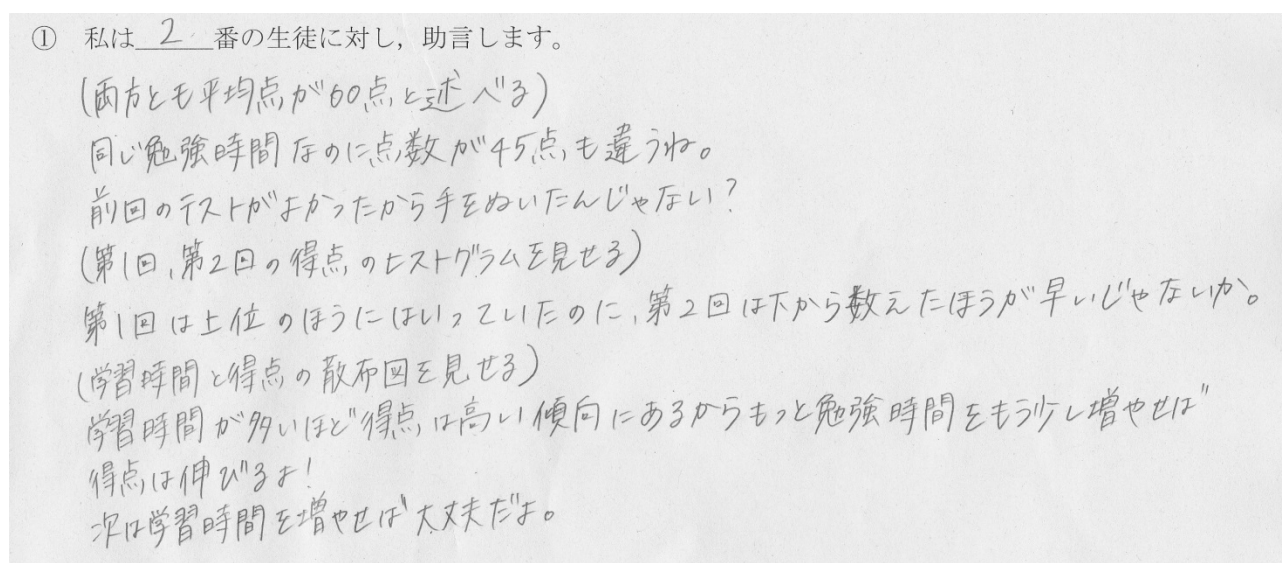 ① 私は 2 番の生徒に対し，助言します。
(両方とも平均点が60点と述べる)
同じ勉強時間なのに点数が45点も違うね。
前回のテストがよかったから手をぬいたんじゃない?
(第1回、第2回の得点のヒストグラムを見せる)
第1回は上位のほうにはいっていたのに、第2回は下から数えたほうが早いじゃないか。
(学習時間と得点の散布図を見せる)
学習時間が多いほど得点は高い傾向にあるからもっと勉強時間をもう少し増やせば
得点は伸びるよ!
次は学習時間を増やせば大丈夫だよ。